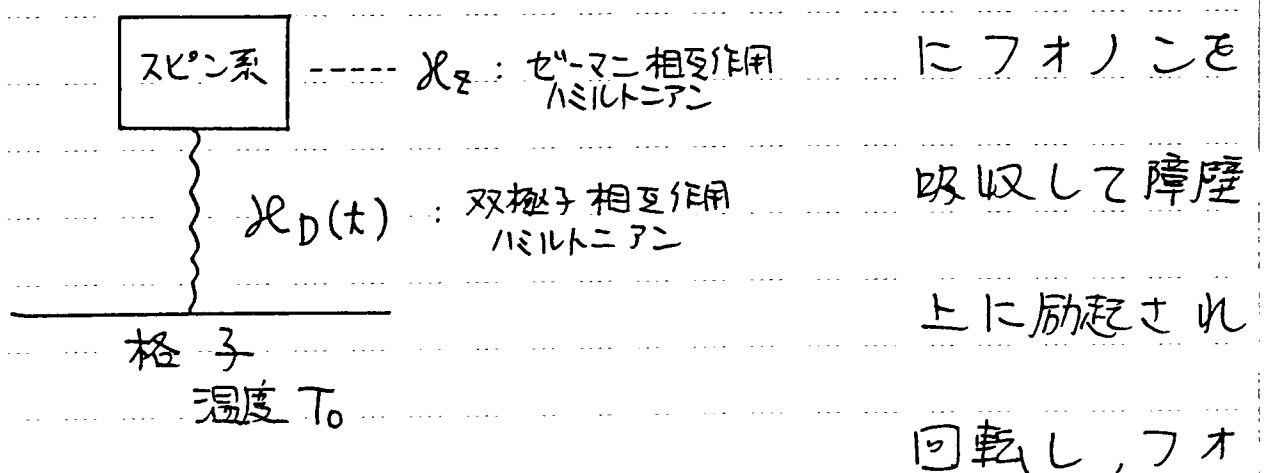 スピン系 ----- ℋz : ゼーマン相互作用
ハミルトニアン
ℋD(t) : 双極子相互作用
ハミルトニアン
格子
温度 T₀
にフォノンを
吸収して障壁
上に励起され
回転し,フォ